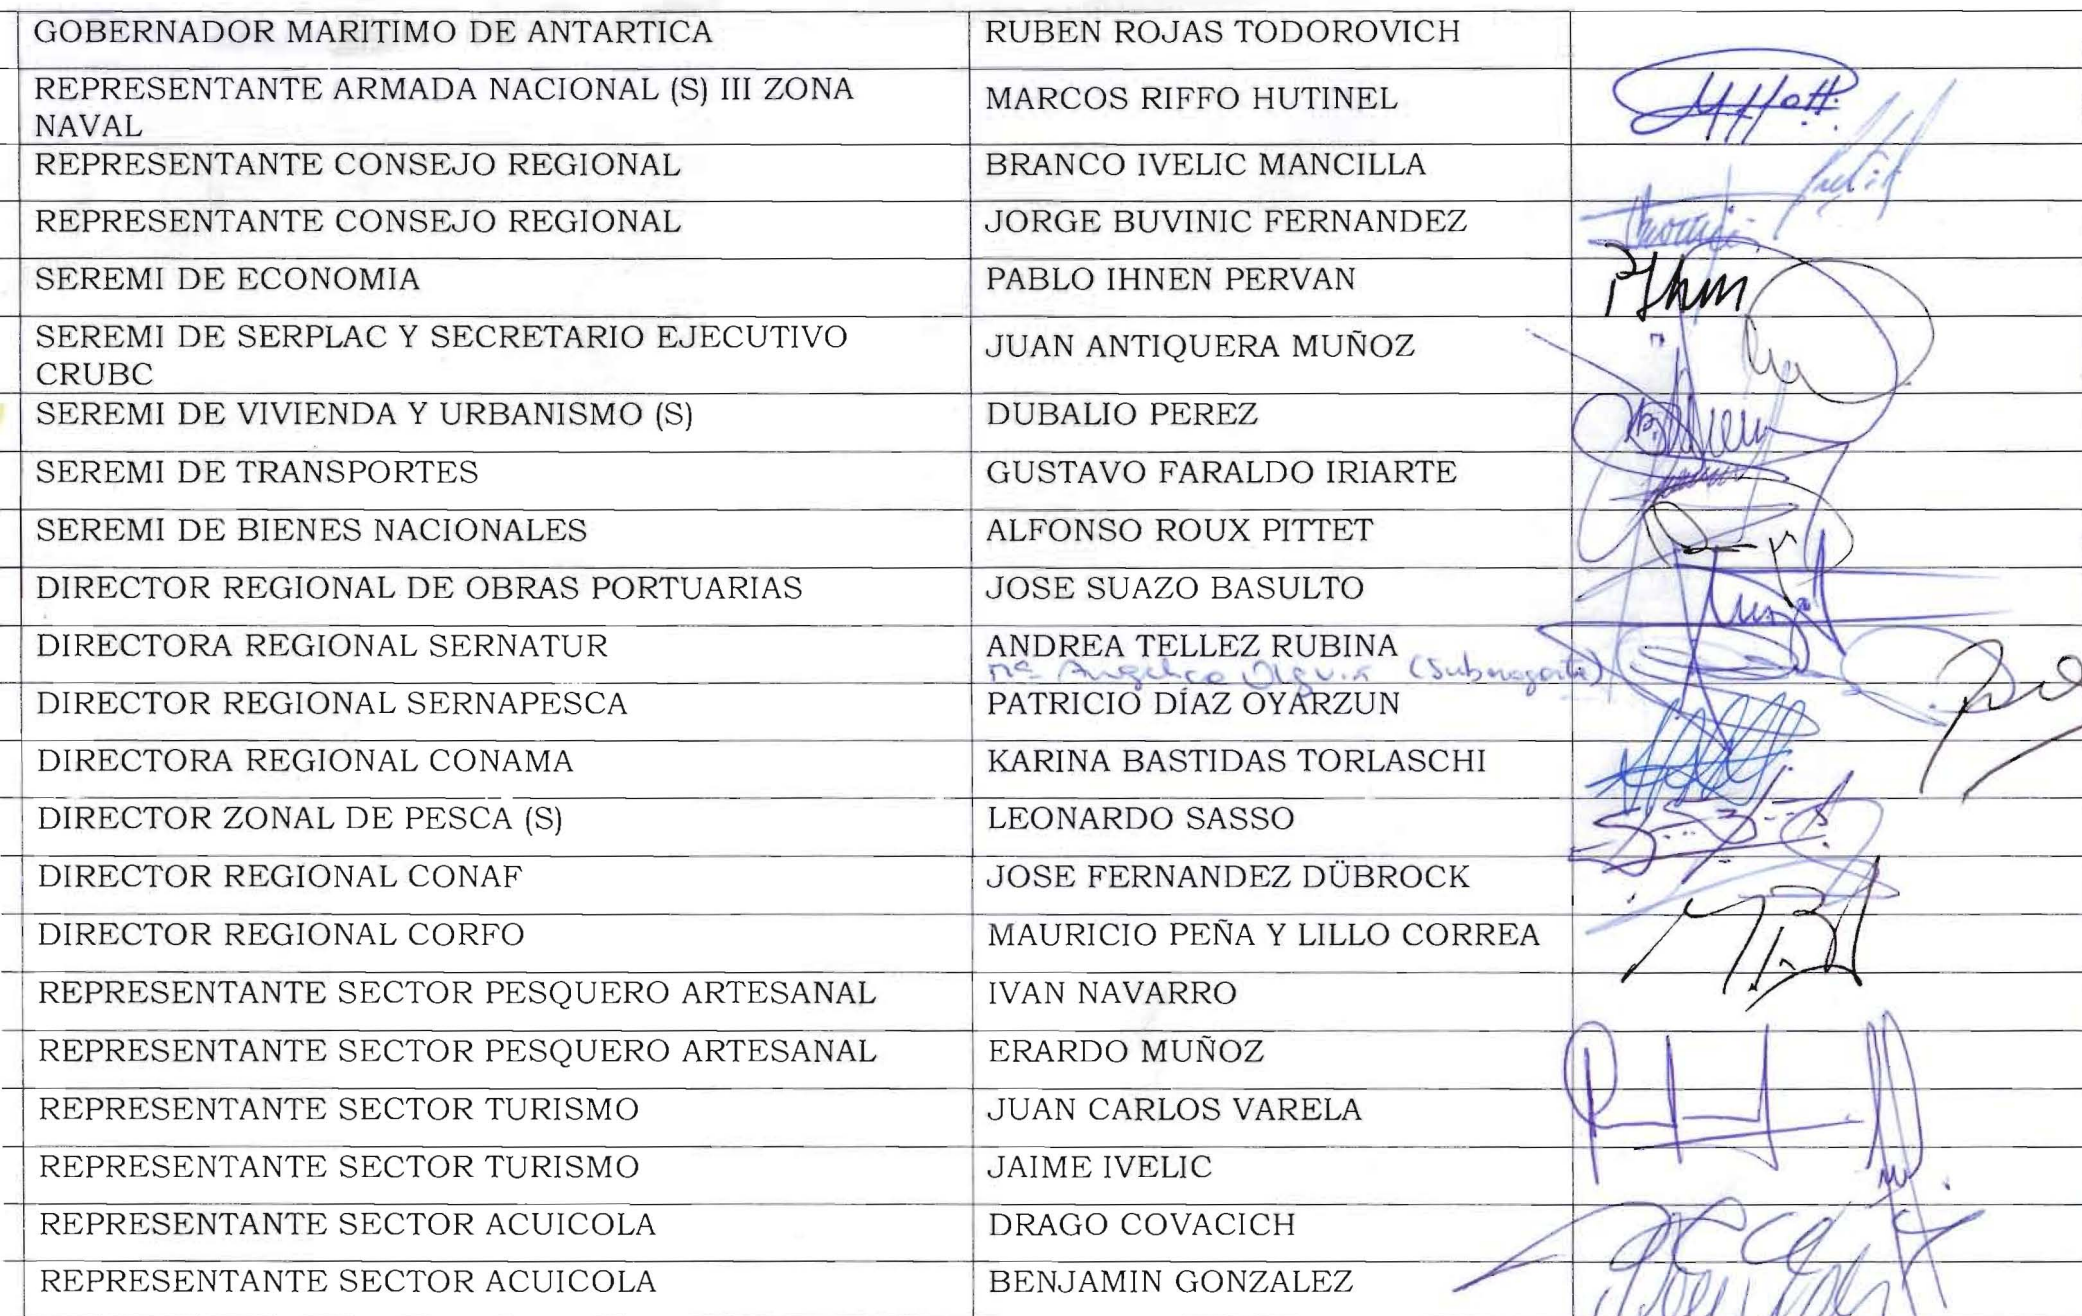 GOBERNADOR MARITIMO DE ANTARTICA RUBEN ROJAS TODOROVICH
REPRESENTANTE ARMADA NACIONAL (S) III ZONA
NAVAL MARCOS RIFFO HUTINEL
REPRESENTANTE CONSEJO REGIONAL BRANCO IVELIC MANCILLA
REPRESENTANTE CONSEJO REGIONAL JORGE BUVINIC FERNANDEZ
SEREMI DE ECONOMIA PABLO IHNEN PERVAN
SEREMI DE SERPLAC Y SECRETARIO EJECUTIVO
CRUBC JUAN ANTIQUERA MUÑOZ
SEREMI DE VIVIENDA Y URBANISMO (S) DUBALIO PEREZ
SEREMI DE TRANSPORTES GUSTAVO FARALDO IRIARTE
SEREMI DE BIENES NACIONALES ALFONSO ROUX PITTET
DIRECTOR REGIONAL DE OBRAS PORTUARIAS JOSE SUAZO BASULTO
DIRECTORA REGIONAL SERNATUR ANDREA TELLEZ RUBINA
Mª Angelica
DIRECTOR REGIONAL SERNAPESCA PATRICIO DÍAZ OYARZUN
DIRECTORA REGIONAL CONAMA KARINA BASTIDAS TORLASCHI
DIRECTOR ZONAL DE PESCA (S) LEONARDO SASSO
DIRECTOR REGIONAL CONAF JOSE FERNANDEZ DÜBROCK
DIRECTOR REGIONAL CORFO MAURICIO PEÑA Y LILLO CORREA
REPRESENTANTE SECTOR PESQUERO ARTESANAL IVAN NAVARRO
REPRESENTANTE SECTOR PESQUERO ARTESANAL ERARDO MUÑOZ
REPRESENTANTE SECTOR TURISMO JUAN CARLOS VARELA
REPRESENTANTE SECTOR TURISMO JAIME IVELIC
REPRESENTANTE SECTOR ACUICOLA DRAGO COVACICH
REPRESENTANTE SECTOR ACUICOLA BENJAMIN GONZALEZ